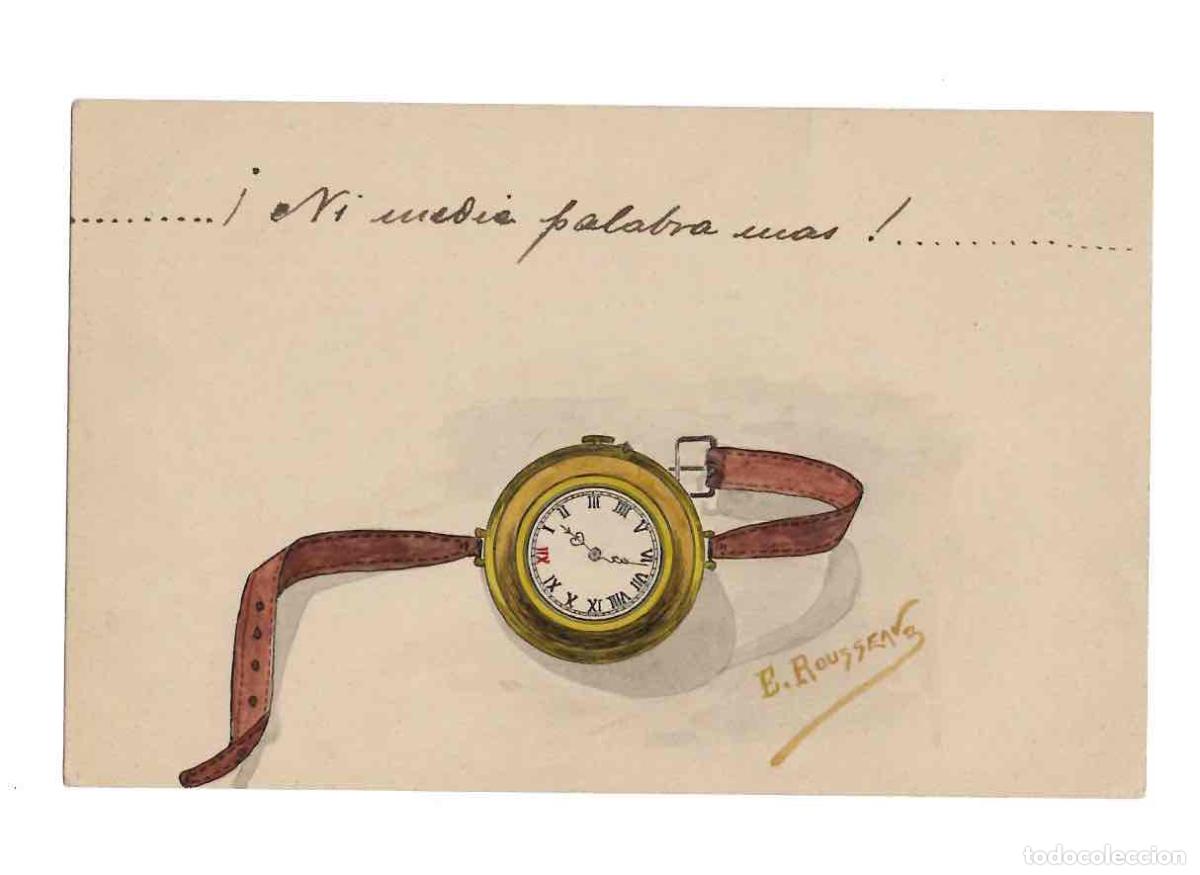 .........¡ Ni media palabra mas !................
I II III IIII V VI VII VIII IX X XI XII
E. ROUSSEAU
todocoleccion